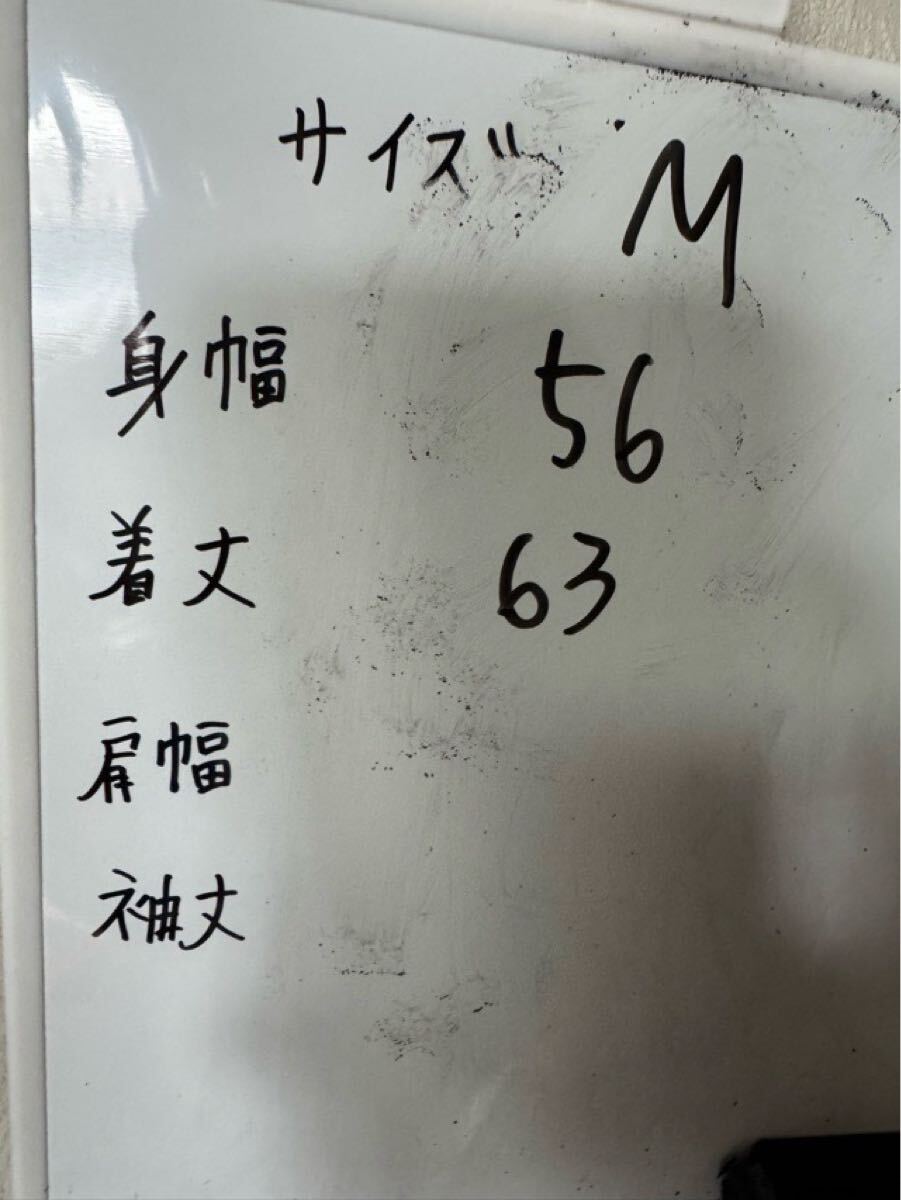 サイズ M
身幅 56
着丈 63
肩幅
袖丈